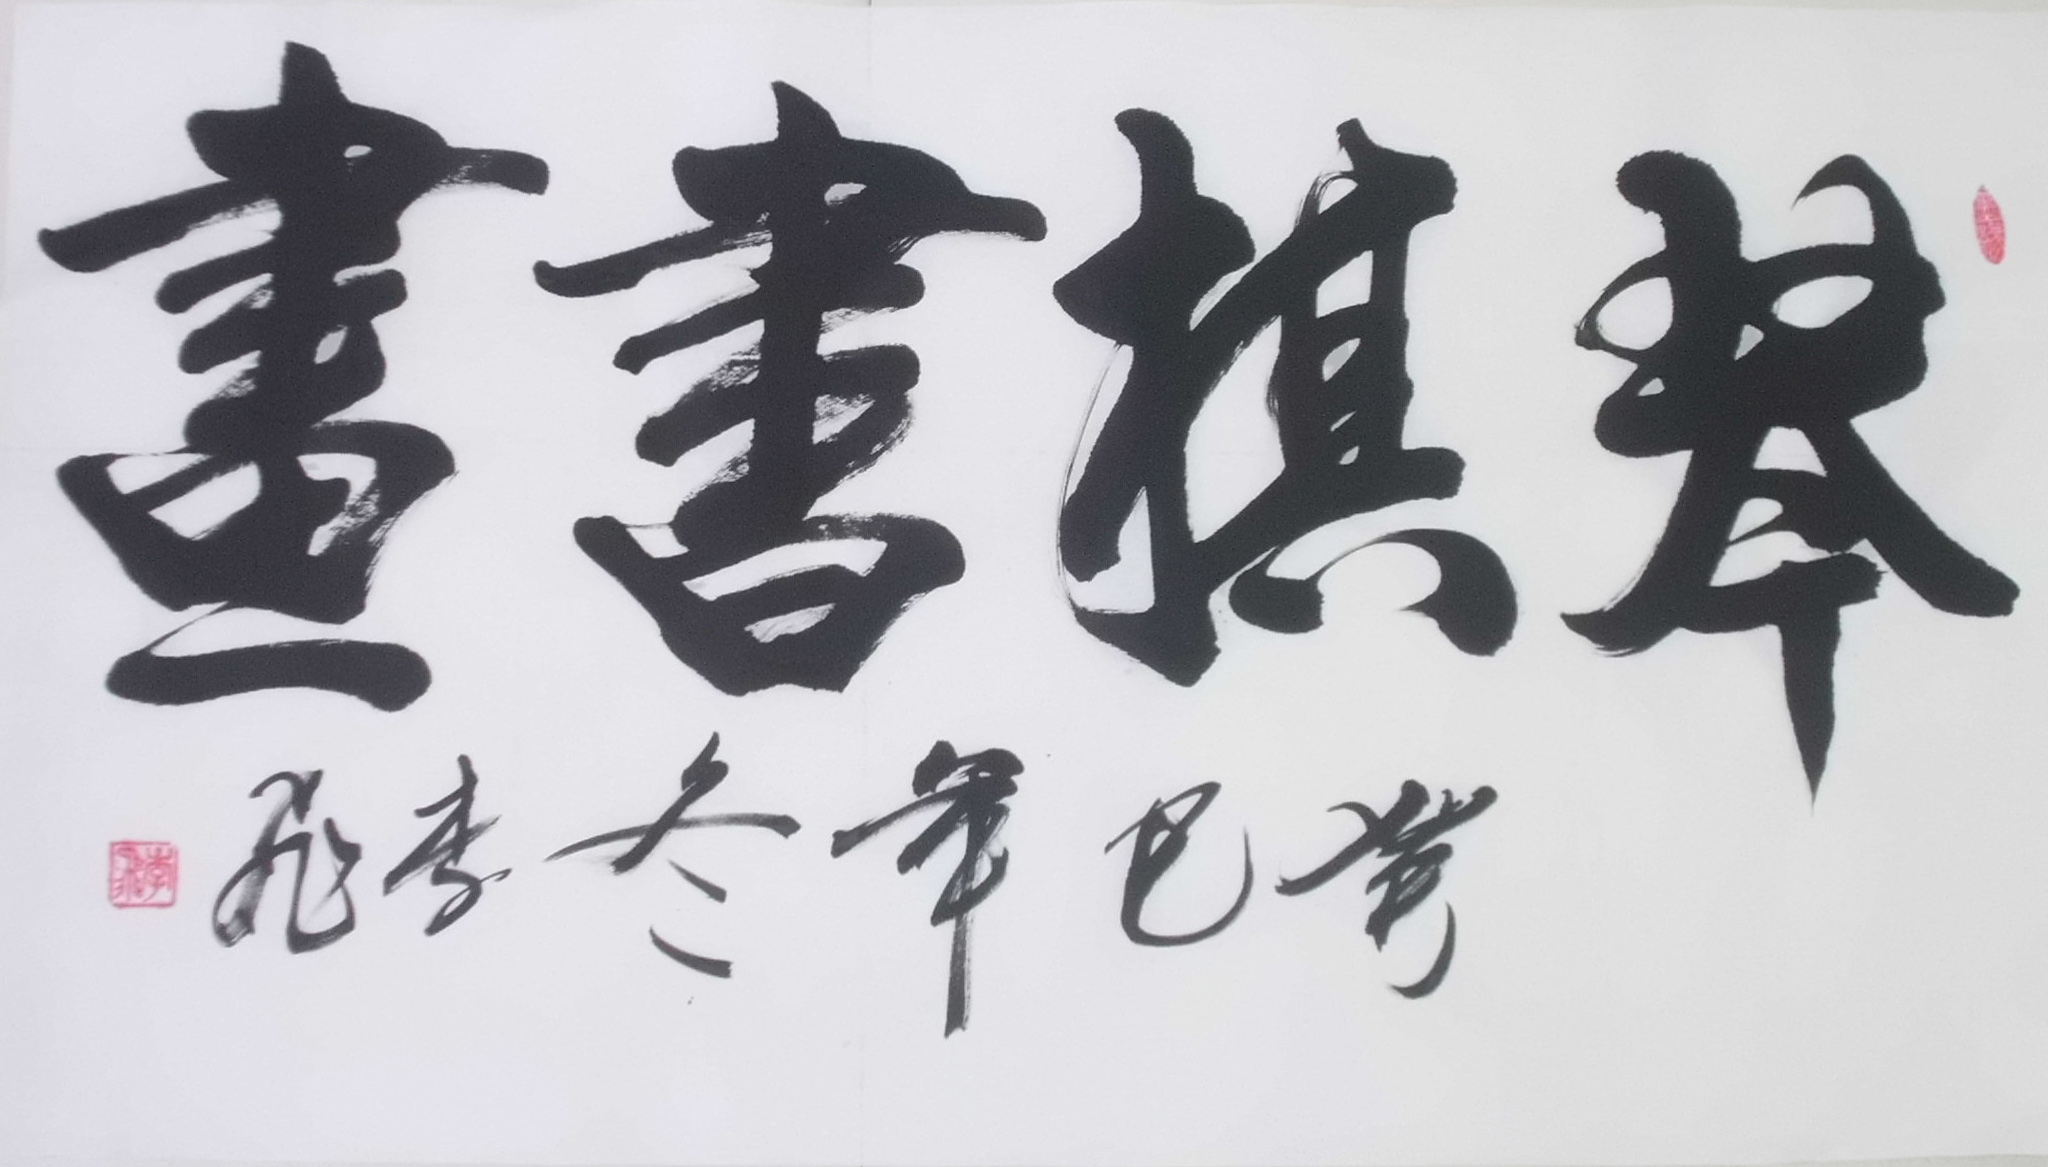 琴棋書畫
癸巳年冬李飛